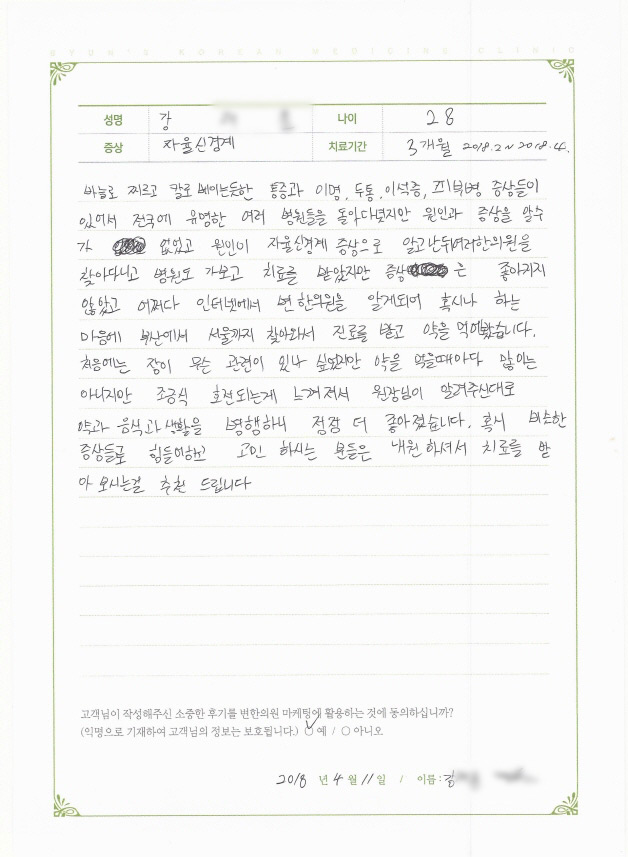 BYUN'S KOREAN MEDICINE CLINIC
성명 강 나이 28
증상 자율신경계 치료기간 3개월 2018.2~2018.4.
바늘로 찌르고 칼로 베이는듯한 통증과 이명, 두통, 이석증, 피부병 증상들이
있어서 전국에 유명한 여러 병원들을 돌아다녔지만 원인과 증상을 알수
가 없었고 원인이 자율신경계 증상으로 알고난뒤여러한의원을
찾아다니고 병원도 가보고 치료를 받았지만 증상은 좋아지지
않았고 어쩌다 인터넷에서 변한의원을 알게되어 혹시나 하는
마음에 부산에서 서울까지 찾아와서 진료를 받고 약을 먹어봤습니다.
처음에는 장이 무슨 관련이 있나 싶었지만 약을 먹을때마다 많이는
아니지만 조금식 호전되는게 느껴져서 원장님이 알려주신대로
약과 음식과 생활을 병행하니 점점 더 좋아졌습니다. 혹시 비슷한
증상들로 힘들어하고 고민 하시는 분들은 내원하셔서 치료를 받
아 보시는걸 추천 드립니다
고객님이 작성해주신 소중한 후기를 변한의원 마케팅에 활용하는 것에 동의하십니까?
(익명으로 기재하여 고객님의 정보는 보호됩니다.) ○ 예 / ○ 아니오
2018 년 4 월 11 일 / 이름 : 강